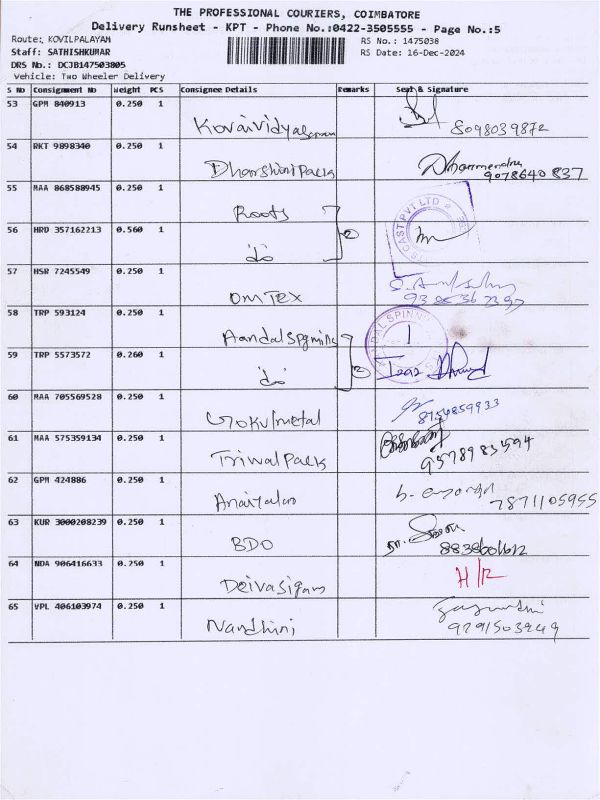 THE PROFESSIONAL COURIERS, COIMBATORE
Delivery Runsheet - KPT - Phone No.:0422-3505555 - Page No.:5
Route: KOVILPALAYAM
RS No.: 1475038
Staff: SATHISHKUMAR
RS Date: 16-Dec-2024
DRS No.: DCJB147503805
Vehicle: Two Wheeler Delivery
S No Consignment No Weight PCS Consignee Details Remarks Seal & Signature
53 GPM 840913 0.250 1
Kovaividyasaram 8098039872
54 RKT 9898340 0.250 1
DharshiniPacks Dharmendra
9078640837
55 MAA 868588945 0.250 1
Roots
56 HRD 357162213 0.560 1
2
do
57 HSR 7245549 0.250 1
OMTEX
58 TRP 593124 0.250 1
AandalSpgmills
59 TRP 5573572 0.260 1
2
do
60 MAA 705569528 0.250 1
Gokulmetal 8754859933
61 MAA 575359134 0.250 1
TriwalPacks 9578983594
62 GPM 424886 0.250 1
7871105955
63 KUR 3000208239 0.250 1
BDO
64 NDA 906416633 0.250 1
H/R
Deivasigam
65 VPL 406103974 0.250 1
Nandhini